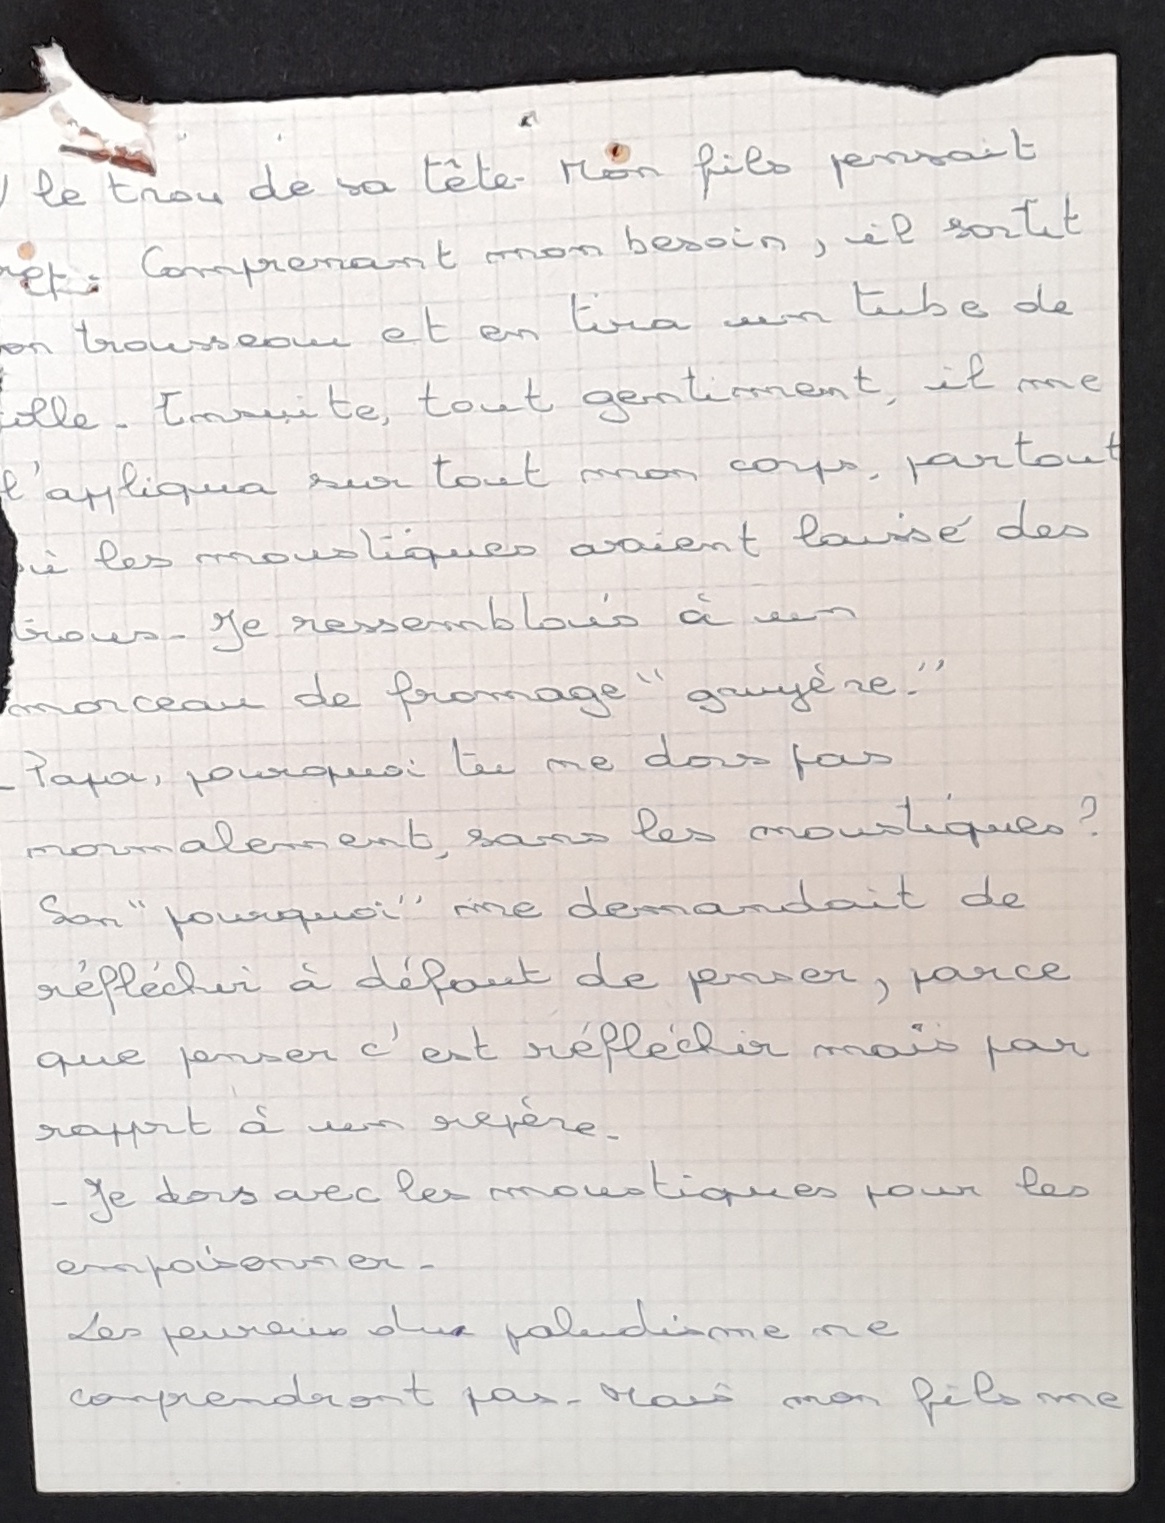 le trou de sa tête. Mon fils pensait
Comprenant mon besoin, il sortit
on trousseau et en tira un tube de
Ensuite, tout gentiment, il me
l'appliqua sur tout mon corps, partout
où les moustiques avaient laissé des
trous. Je ressemblais à un
morceau de fromage "gruyère."
- Papa, pourquoi tu ne dors pas
normalement, sans les moustiques?
Son "pourquoi" me demandait de
réfléchir à défaut de penser, parce
que penser c'est réfléchir mais par
rapprt à un repère.
- Je dors avec les moustiques pour les
empoisonner.
Les peureux du paludisme ne
comprendront pas. Mais mon fils me